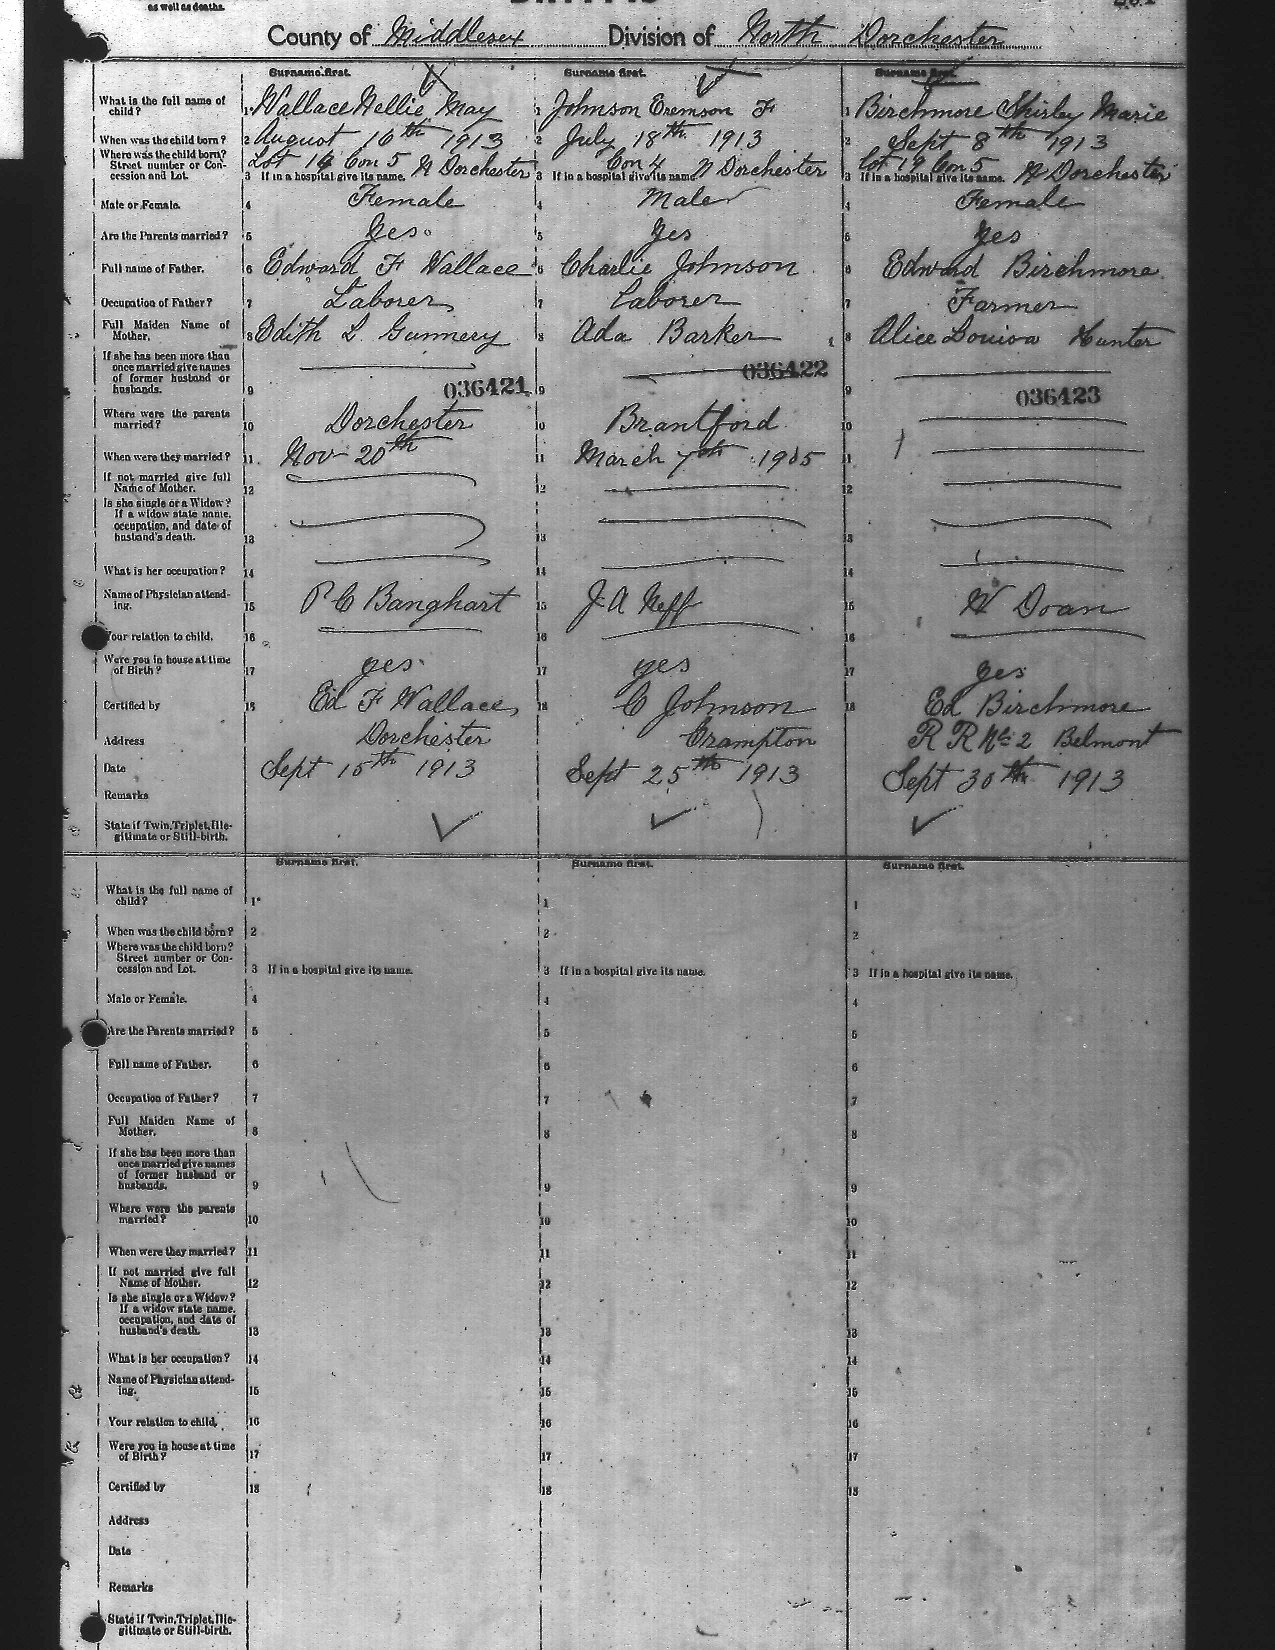 as well as deaths.
County of Middlesex Division of North Dorchester
Surname first. Surname first. Surname first.
What is the full name of child? 1 Wallace Nellie May 1 Johnson Eremson F 1 Birchmore Shirley Marie
When was the child born? 2 August 16th 1913 2 July 18th 1913 2 Sept 8th 1913
Where was the child born? Street number or Concession and Lot. 3 If in a hospital give its name. Lot 16 Con 5 N Dorchester 3 If in a hospital give its name. Con 4 N Dorchester 3 If in a hospital give its name. Lot 19 Con 5 N Dorchester
Male or Female. 4 Female 4 Male 4 Female
Are the Parents married? 5 Yes 5 Yes 5 Yes
Full name of Father. 6 Edward F Wallace 6 Charlie Johnson 6 Edward Birchmore
Occupation of Father? 7 Laborer 7 Laborer 7 Farmer
Full Maiden Name of Mother. 8 Edith L Gunnery 8 Ada Barker 8 Alice Louisa Hunter
If she has been more than once married give names of former husband or husbands. 9 036421 9 036422 9 036423
Where were the parents married? 10 Dorchester 10 Brantford 10
When were they married? 11 Nov 20th 11 March 7th 1905 11
If not married give full Name of Mother. 12 12 12
Is she single or a Widow? If a widow state name, occupation, and date of husband's death. 13 13 13
What is her occupation? 14 14 14
Name of Physician attending. 15 P C Banghart 15 J A Neff 15 W Doan
Your relation to child. 16 16 16
Were you in house at time of Birth? 17 yes 17 yes 17 yes
Certified by 18 Ed F Wallace 18 C Johnson 18 Ed Birchmore
Address Dorchester Crampton R R No 2 Belmont
Date Sept 15th 1913 Sept 25th 1913 Sept 30th 1913
Remarks
State if Twin, Triplet, Illegitimate or Still-birth.
Surname first. Surname first. Surname first.
What is the full name of child? 1 1 1
When was the child born? 2 2 2
Where was the child born? Street number or Concession and Lot. 3 If in a hospital give its name. 3 If in a hospital give its name. 3 If in a hospital give its name.
Male or Female. 4 4 4
Are the Parents married? 5 5 5
Full name of Father. 6 6 6
Occupation of Father? 7 7 7
Full Maiden Name of Mother. 8 8 8
If she has been more than once married give names of former husband or husbands. 9 9 9
Where were the parents married? 10 10 10
When were they married? 11 11 11
If not married give full Name of Mother. 12 12 12
Is she single or a Widow? If a widow state name, occupation, and date of husband's death. 13 13 13
What is her occupation? 14 14 14
Name of Physician attending. 15 15 15
Your relation to child. 16 16 16
Were you in house at time of Birth? 17 17 17
Certified by 18 18 18
Address
Date
Remarks
State if Twin, Triplet, Illegitimate or Still-birth.